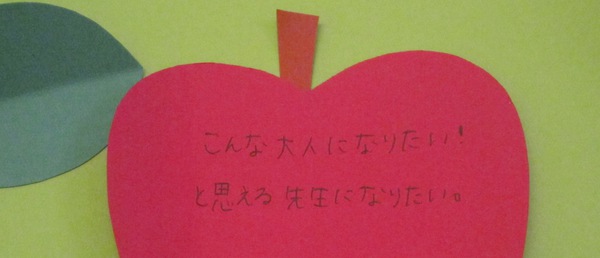 こんな大人になりたい!
と思える先生になりたい。